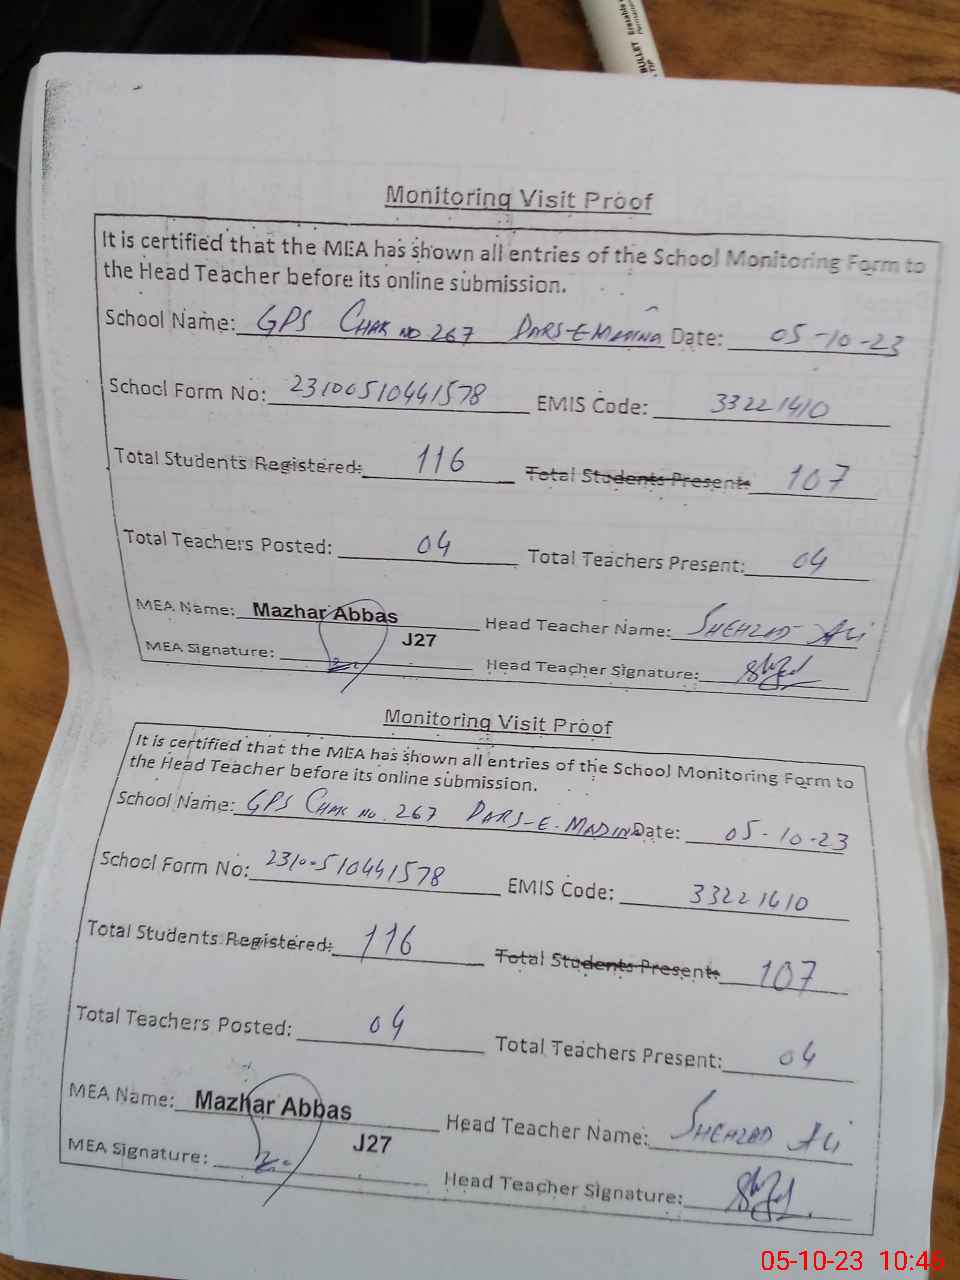 BULLET Erasable
TIP Permanent
Monitoring Visit Proof
It is certified that the MEA has shown all entries of the School Monitoring Form to
the Head Teacher before its online submission.
School Name: GPS CHAK NO 267 DARS-E-MADINA Date: 05-10-23
School Form No: 23100510441578 EMIS Code: 33221410
Total Students Registered: 116 Total Students Present: 107
Total Teachers Posted: 04 Total Teachers Present: 04
MEA Name: Mazhar Abbas Head Teacher Name: SHEHZAD ALI
J27
MEA Signature: Head Teacher Signature:
Monitoring Visit Proof
It is certified that the MEA has shown all entries of the School Monitoring Form to
the Head Teacher before its online submission.
School Name: GPS CHAK NO. 267 DARS-E-MADINA Date: 05-10-23
School Form No: 23100510441578 EMIS Code: 33221410
Total Students Registered: 116 Total Students Present: 107
Total Teachers Posted: 04 Total Teachers Present: 04
MEA Name: Mazhar Abbas Head Teacher Name: SHEHZAD ALI
J27
MEA Signature: Head Teacher Signature:
05-10-23 10:46